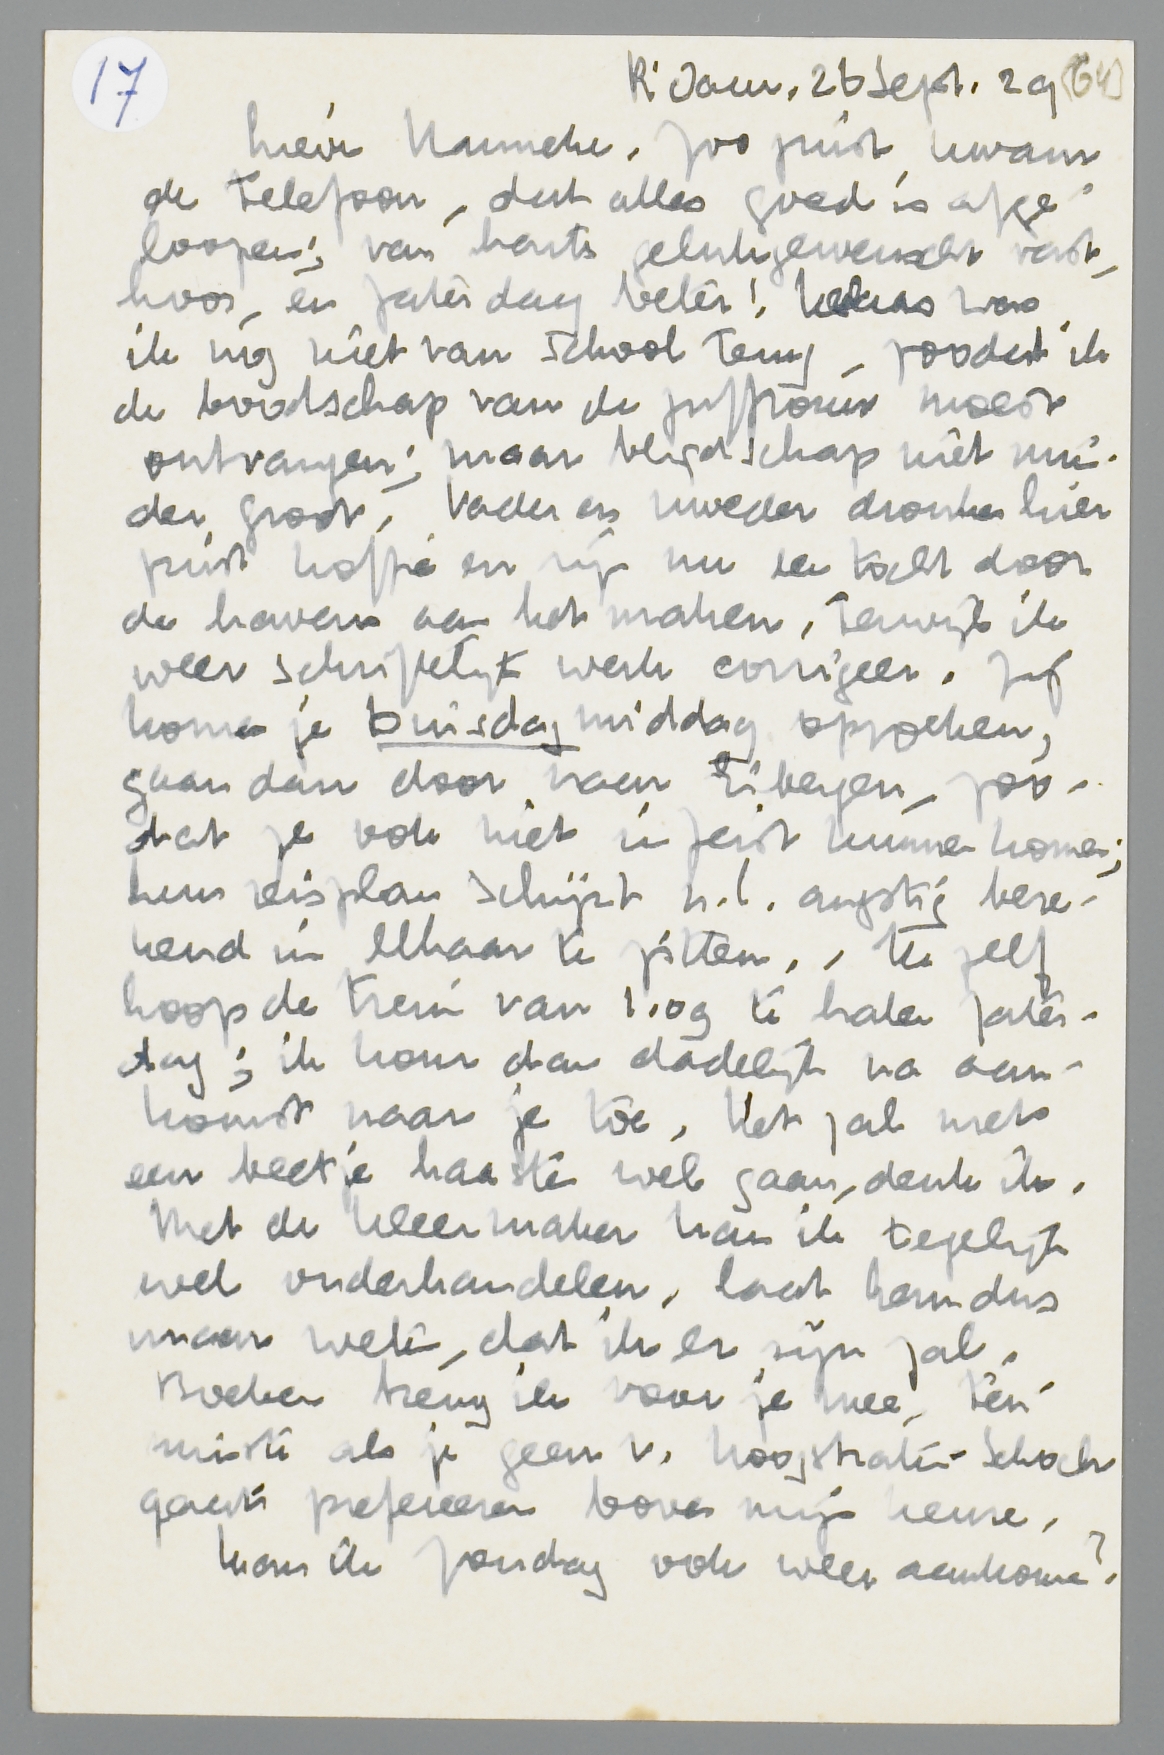 17
R'dam, 26 Sept. 29 (64)
Lieve Hanneke, Zoo juist kwam
de telefoon, dat alles goed is afge-
loopen; van harte gelukgewenscht vast,
hoor, en Zaterdag beter! Helaas was
ik nog niet van school terug, zoodat ik
de boodschap van de juffrouw moest
ontvangen; maar blijdschap niet min-
der groot. Vader en moeder dronken hier
juist koffie en zijn nu een tocht door
de havens aan het maken, terwijl ik
weer schriftelijk werk corrigeer. Zij
komen je Dinsdagmiddag opzoeken,
gaan dan door naar Eibergen, zoo-
dat ze ook niet in Zeist kunnen komen;
hun reisplan schijnt n.l. angstig bere-
kend in elkaar te zitten. Ik zelf
hoop de trein van 1.09 te halen Zater-
dag; ik kom dan dadelijk na aan-
komst naar je toe. Het zal met
een beetje haasten wel gaan, denk ik.
Met de kleermaker kan ik tegelijk
wel onderhandelen, laat hem dus
maar weten, dat ik er zijn zal.
Boeken breng ik voor je mee, ten-
minste als je geen v. Hoogstraten-Schoch
gaat prefereeren boven mijn keuze.
Kan ik Zondag ook weer aankomen?